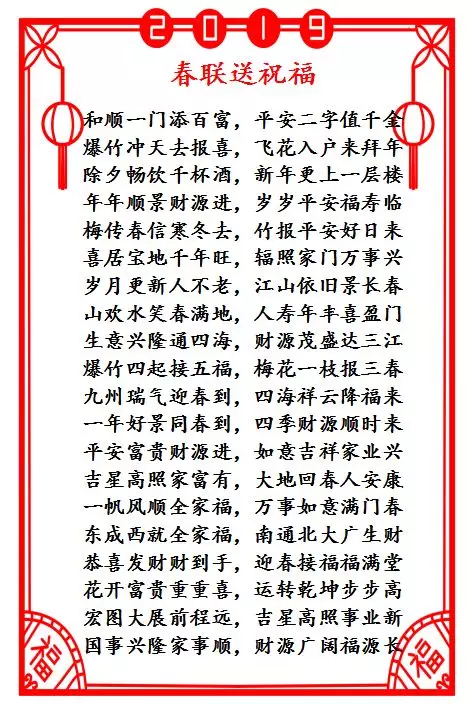 2019
春联送祝福
和顺一门添百富，平安二字值千金
爆竹冲天去报喜，飞花入户来拜年
除夕畅饮千杯酒，新年更上一层楼
年年顺景财源进，岁岁平安福寿临
梅传春信寒冬去，竹报平安好日来
喜居宝地千年旺，辐照家门万事兴
岁月更新人不老，江山依旧景长春
山欢水笑春满地，人寿年丰喜盈门
生意兴隆通四海，财源茂盛达三江
爆竹四起接五福，梅花一枝报三春
九州瑞气迎春到，四海祥云降福来
一年好景同春到，四季财源顺时来
平安富贵财源进，如意吉祥家业兴
吉星高照家富有，大地回春人安康
一帆风顺全家福，万事如意满门春
东成西就全家福，南通北大广生财
恭喜发财财到手，迎春接福福满堂
花开富贵重重喜，运转乾坤步步高
宏图大展前程远，吉星高照事业新
国事兴隆家事顺，财源广阔福源长
福
福